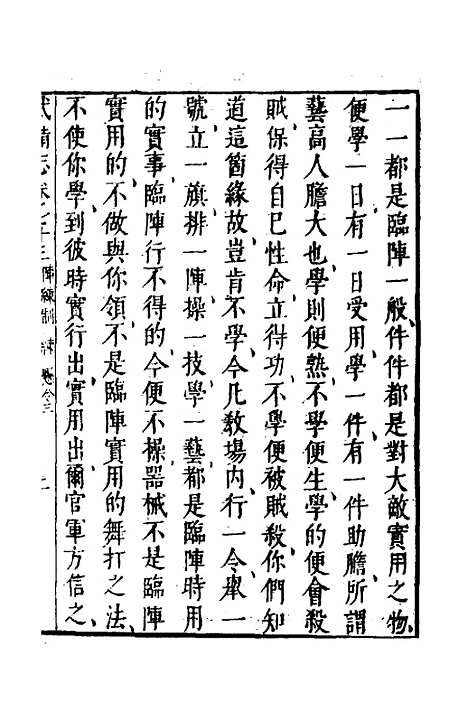 一一都是臨陣一般件件都是對大敵實用之物
便學一日有一日受用學一件有一件助膽所謂
藝高人膽大也學則便熟不學便生學的便會殺
賊保得自已性命立得功不學便被賊殺你們知
道這箇緣故豈肯不學今凡教場内行一令舉一
號立一旗排一陣操一技學一藝都是臨陣時用
的實事臨陣行不得的今便不操器械不是臨陣
實用的不做與你領不是臨陣實用的舞打之法
不使你學到彼時實行出實用出爾官軍方信之
武備志卷 陣練制